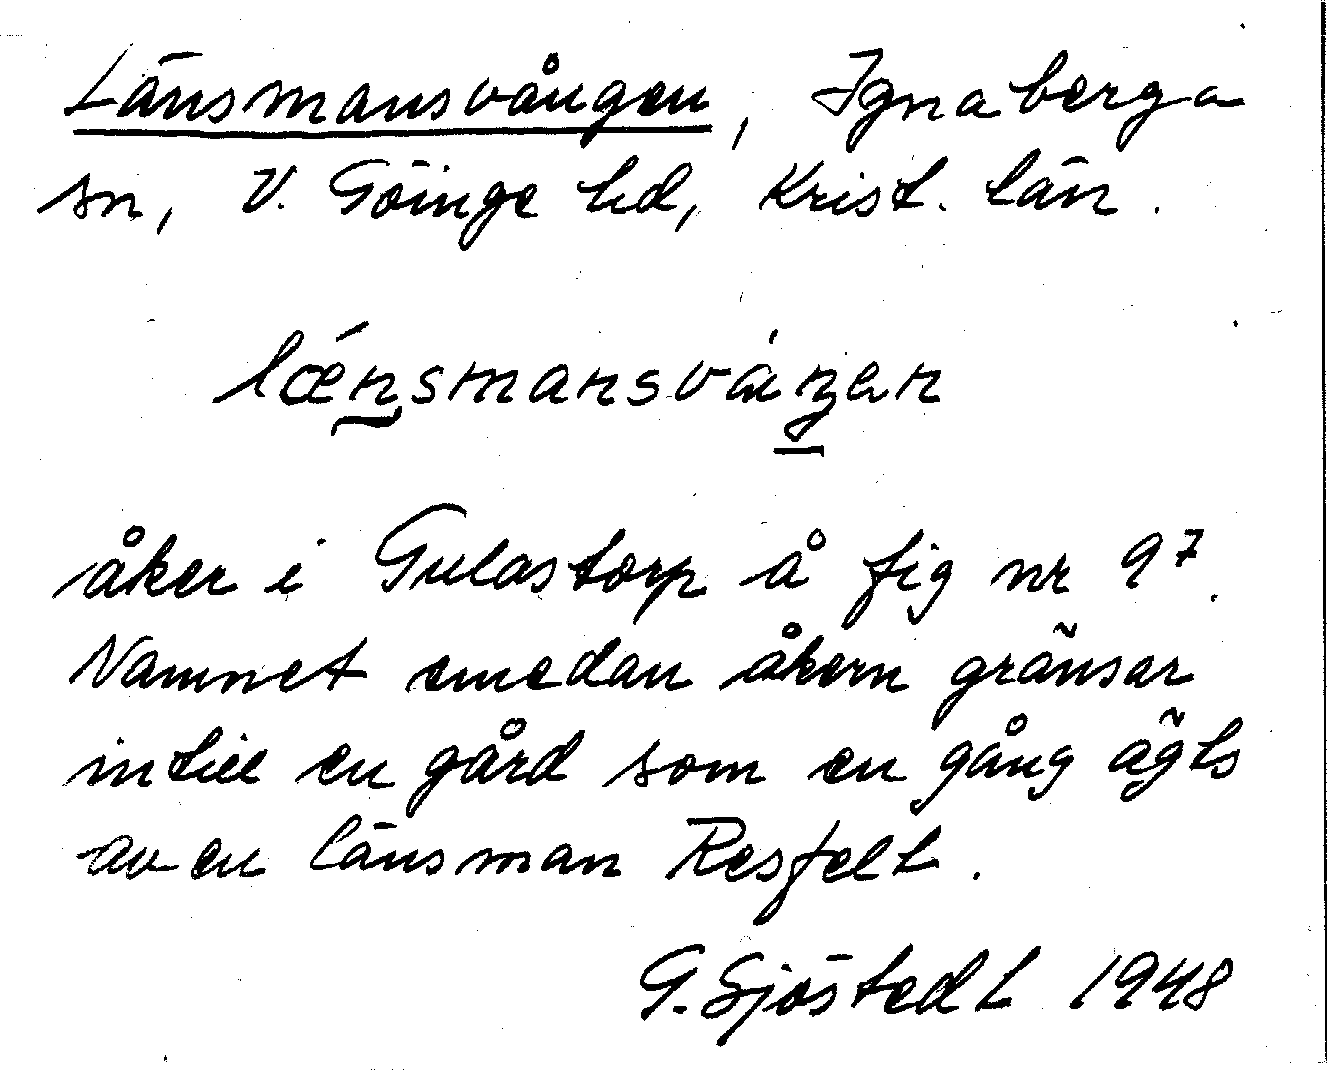 Länsmansvången, Ignaberga
sn, V. Göinge hd, Krist. län.
lænsmansvåŋen
åker i Gulastorp å fig nr 97.
Namnet emedan åkern gränsar
intill en gård som en gång ägts
av en länsman Resfelt.
G. Sjöstedt 1948